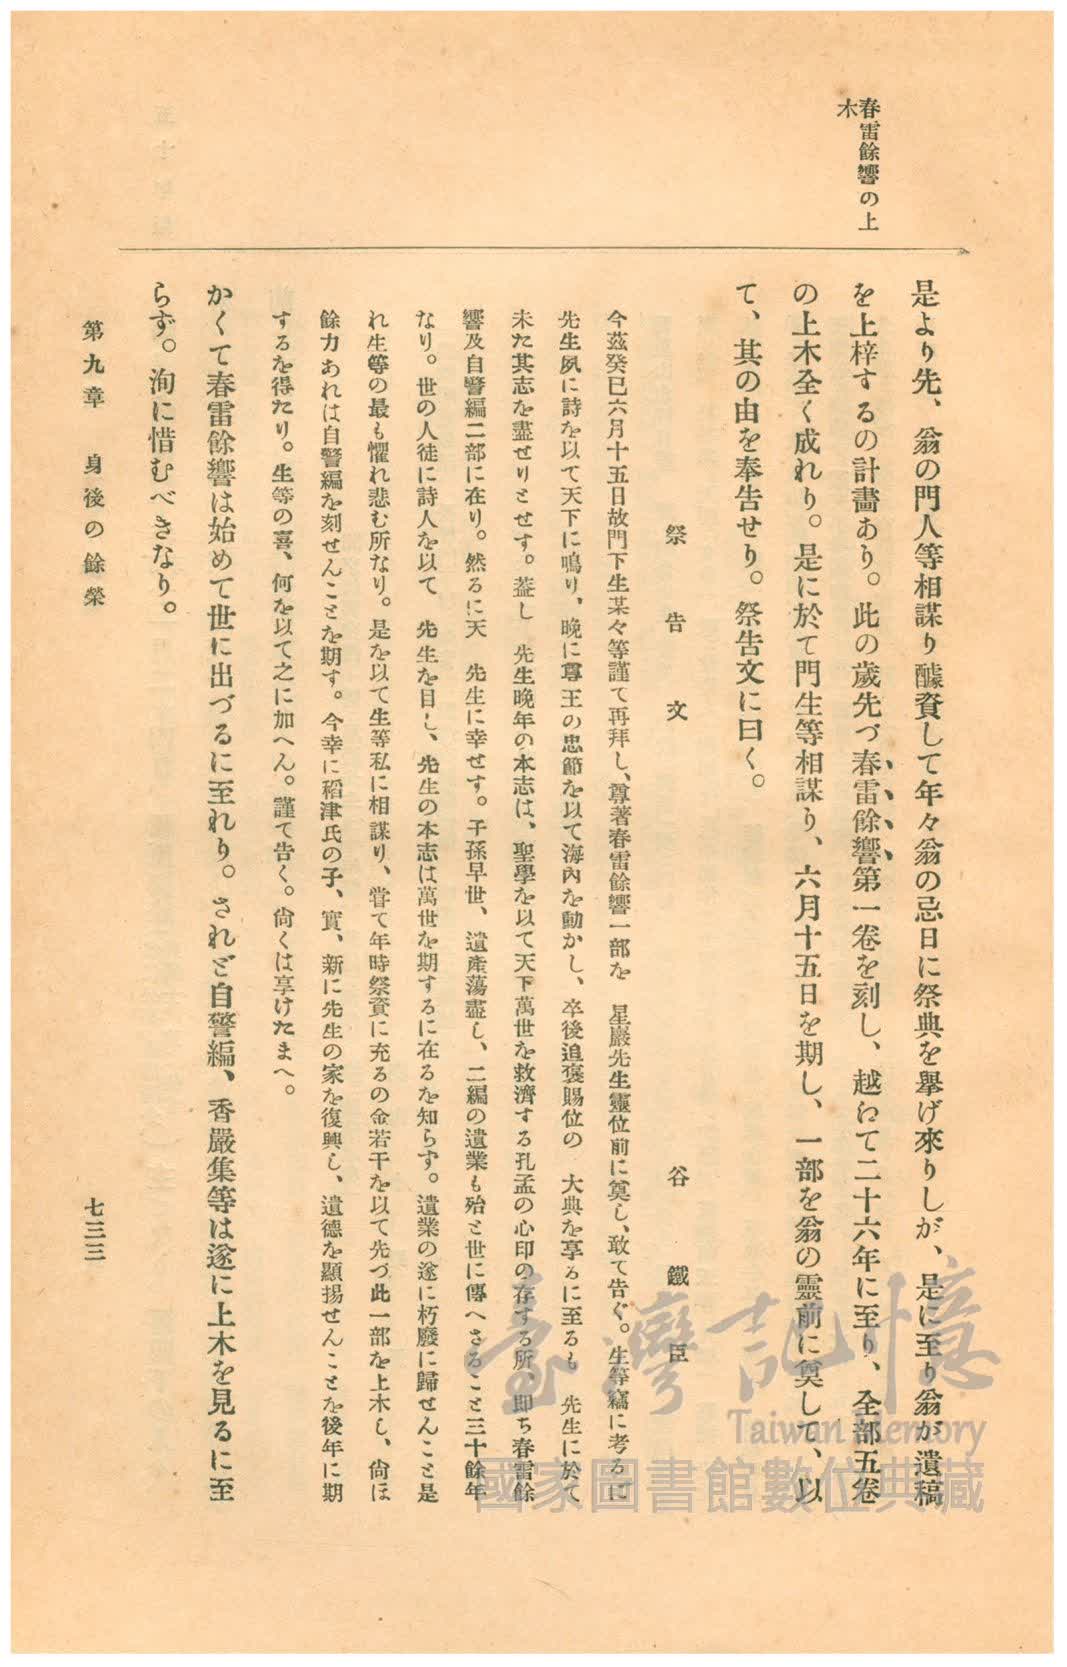 春雷餘響の上
木
是より先、翁の門人等相謀り醵資して年々翁の忌日に祭典を擧げ來りしが、是に至り翁が遺稿
を上梓するの計畫あり。此の歲先づ春雷餘響第一卷を刻し、越えて二十六年に至り、全部五卷
の上木全く成れり。是に於て門生等相謀り、六月十五日を期し、一部を翁の靈前に奠して、以
て、其の由を奉告せり。祭告文に曰く。
祭告文 谷鐵臣
今茲癸巳六月十五日故門下生某々等謹て再拜し、尊著春雷餘響一部を 星巖先生靈位前に奠し、敢て告ぐ。生等竊に考るに
先生夙に詩を以て天下に鳴り、晩に尊王の忠節を以て海內を動かし、卒後追褒賜位の 大典を享るに至るも 先生に於て
未た其志を盡せりとせす。蓋し 先生晩年の本志は、聖學を以て天下萬世を救濟する孔孟の心印の存する所、卽ち春雷餘
響及自警編二部に在り。然るに天 先生に幸せす。子孫早世、遺產蕩盡し、二編の遺業も殆と世に傳へさること三十餘年
なり。世の人徒に詩人を以て 先生を目し、先生の本志は萬世を期するに在るを知らす。遺業の遂に朽廢に歸せんこと是
れ生等の最も懼れ悲む所なり。是を以て生等私に相謀り、甞て年時祭資に充るの金若干を以て先づ此一部を上木し、尙ほ
餘力あれは自警編を刻せんことを期す。今幸に稻津氏の子、實、新に先生の家を復興し、遺德を顯揚せんことを後年に期
するを得たり。生等の喜、何を以て之に加へん。謹て告く。尙くは享けたまへ。
かくて春雷餘響は始めて世に出づるに至れり。されど自警編、香嚴集等は遂に上木を見るに至
らず。洵に惜むべきなり。
第九章 身後の餘榮 七三三
臺灣記憶
Taiwan Memory
國家圖書館數位典藏